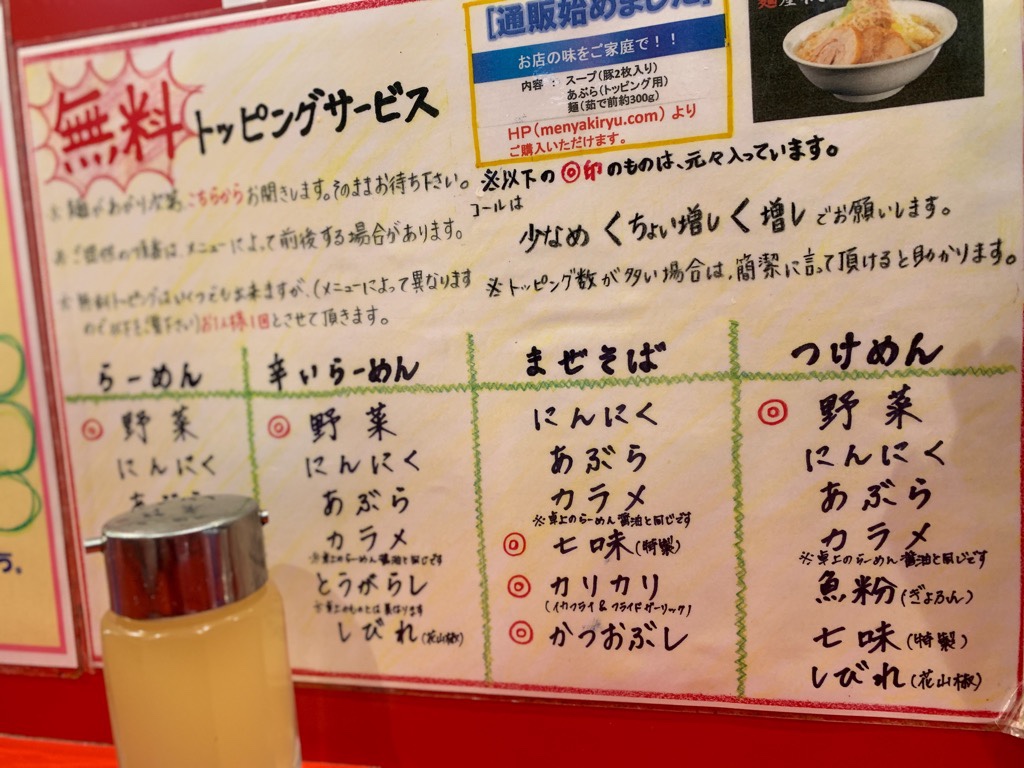 無料
トッピングサービス
[通販始めました]
お店の味をご家庭で！！
内容 ： スープ(豚2枚入り)
あぶら(トッピング用)
麺(茹で前約300g)
HP(menyakiryu.com) より
ご購入いただけます。
※ 麺があがり次第、こちらからお聞きします。そのままお待ち下さい。
※ご提供の順番は、メニューによって前後する場合があります。
※ 無料トッピングはいくつでも出来ますが、(メニューによって異なります
ので以下をご覧下さい)お1人様1回とさせて頂きます。
※以下の◎印のものは、元々入っています。
コールは
少なめ く ちょい増し く 増し でお願いします。
※トッピング数が多い場合は、簡潔に言って頂けると助かります。
らーめん
◎ 野菜
にんにく
あぶら
辛いらーめん
◎ 野菜
にんにく
あぶら
カラメ
※卓上のらーめん醤油と同じです
とうがらし
※卓上のものとは異なります
しびれ(花山椒)
まぜそば
にんにく
あぶら
カラメ
※卓上のらーめん醤油と同じです
◎ 七味(特製)
◎ カリカリ
(イカフライ&フライドガーリック)
◎ かつおぶし
つけめん
◎ 野菜
にんにく
あぶら
カラメ
※卓上のらーめん醤油と同じです
魚粉(ぎょふん)
七味(特製)
しびれ(花山椒)
う。